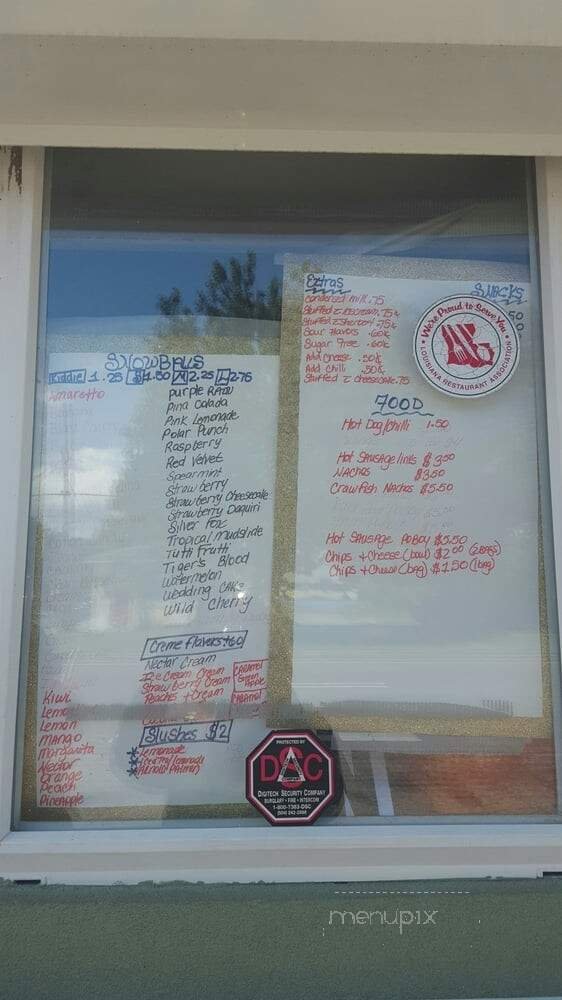 SNOWBALLS
Kiddie 1.25 S $1.50 M 2.25 L 2.75
Amaretto
purple RAIN
Pina Colada
Pink Lemonade
Polar Punch
Raspberry
Red Velvet
Spearmint
Strawberry
Strawberry Cheesecake
Strawberry Daquiri
Silver Fox
Tropical mudslide
Tutti Frutti
Tiger's Blood
Watermelon
Wedding CAKE
Wild Cherry
Kiwi
Lemon
MANGO
Margarita
Nectar
Orange
Peach
Pineapple
Creme flavors +60
Nectar Cream
Ice Cream Cream
Strawberry Cream
Peaches + Cream
CARAMEL
Green
Apple
CARAMEL
Slushes $2
Lemonade
(Arnold Palmer)
Extras
Condensed milk .75
Stuffed c icecream .75¢
Sour flavors .60¢
Sugar Free .60¢
Add Cheese .50¢
Add Chili .50¢
Stuffed c cheesecake .75
SNACKS
50
50
We're Proud to Serve You
LOUISIANA RESTAURANT ASSOCIATION
FOOD
Hot Dog/chilli 1.50
Hot SAUSAGE links $3.50
NAchos $3.50
Crawfish NAchos $5.50
Hot SAUSAGE POBOY $5.50
Chips + Cheese (bowl) $2.00 (2bags)
Chips + Cheese (bag) $1.50 (1bag)
PROTECTED BY
DSC
DIGITECH SECURITY COMPANY
BURGLARY • FIRE • INTERCOM
1-800-7383-DSC
menupix